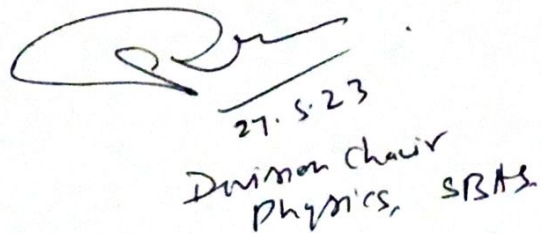 27.5.23
Division Chair
Physics, SBAS.